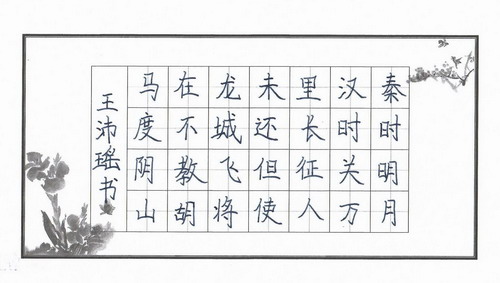 秦时明月
汉时关万
里长征人
未还但使
龙城飞将
在不教胡
马度阴山
王沛瑶书